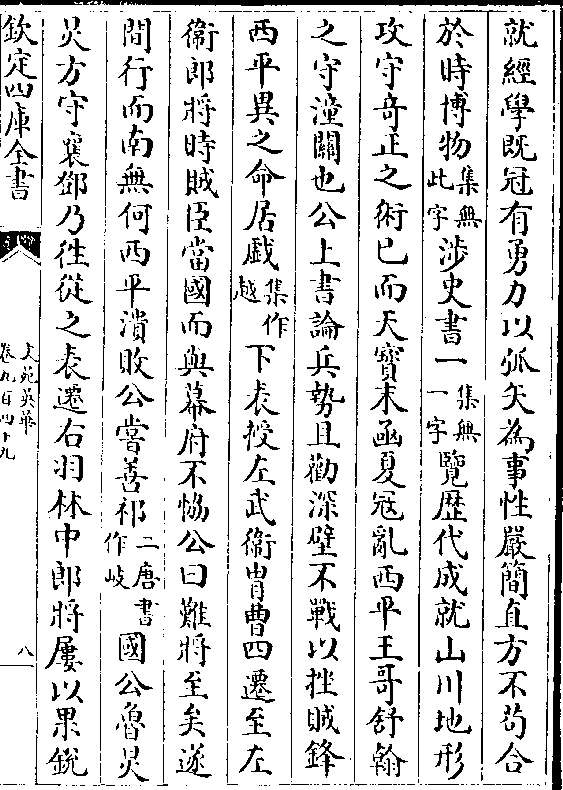 就經學既冠有勇力以弧矢為事性嚴簡直方不茍合
於時博物集無此字涉史書一集無一字覽歴代成就山川地形
攻守竒正之術已而天寳末函夏冦亂西平王哥舒翰
之守潼關也公上書論兵勢且勸深壁不戰以挫賊鋒
西平異之命居戯集作越下表授左武衞胄曹四遷至左
衞郎將時賊臣當國而與幕府不恊公曰難將至矣遂
間行而南無何西平潰敗公嘗善祁二唐書作岐國公魯炅
炅方守襄鄧乃徃從之表遷右羽林中郎將屢以果銳
欽定四庫全書
文苑英華
卷九百四十九
八